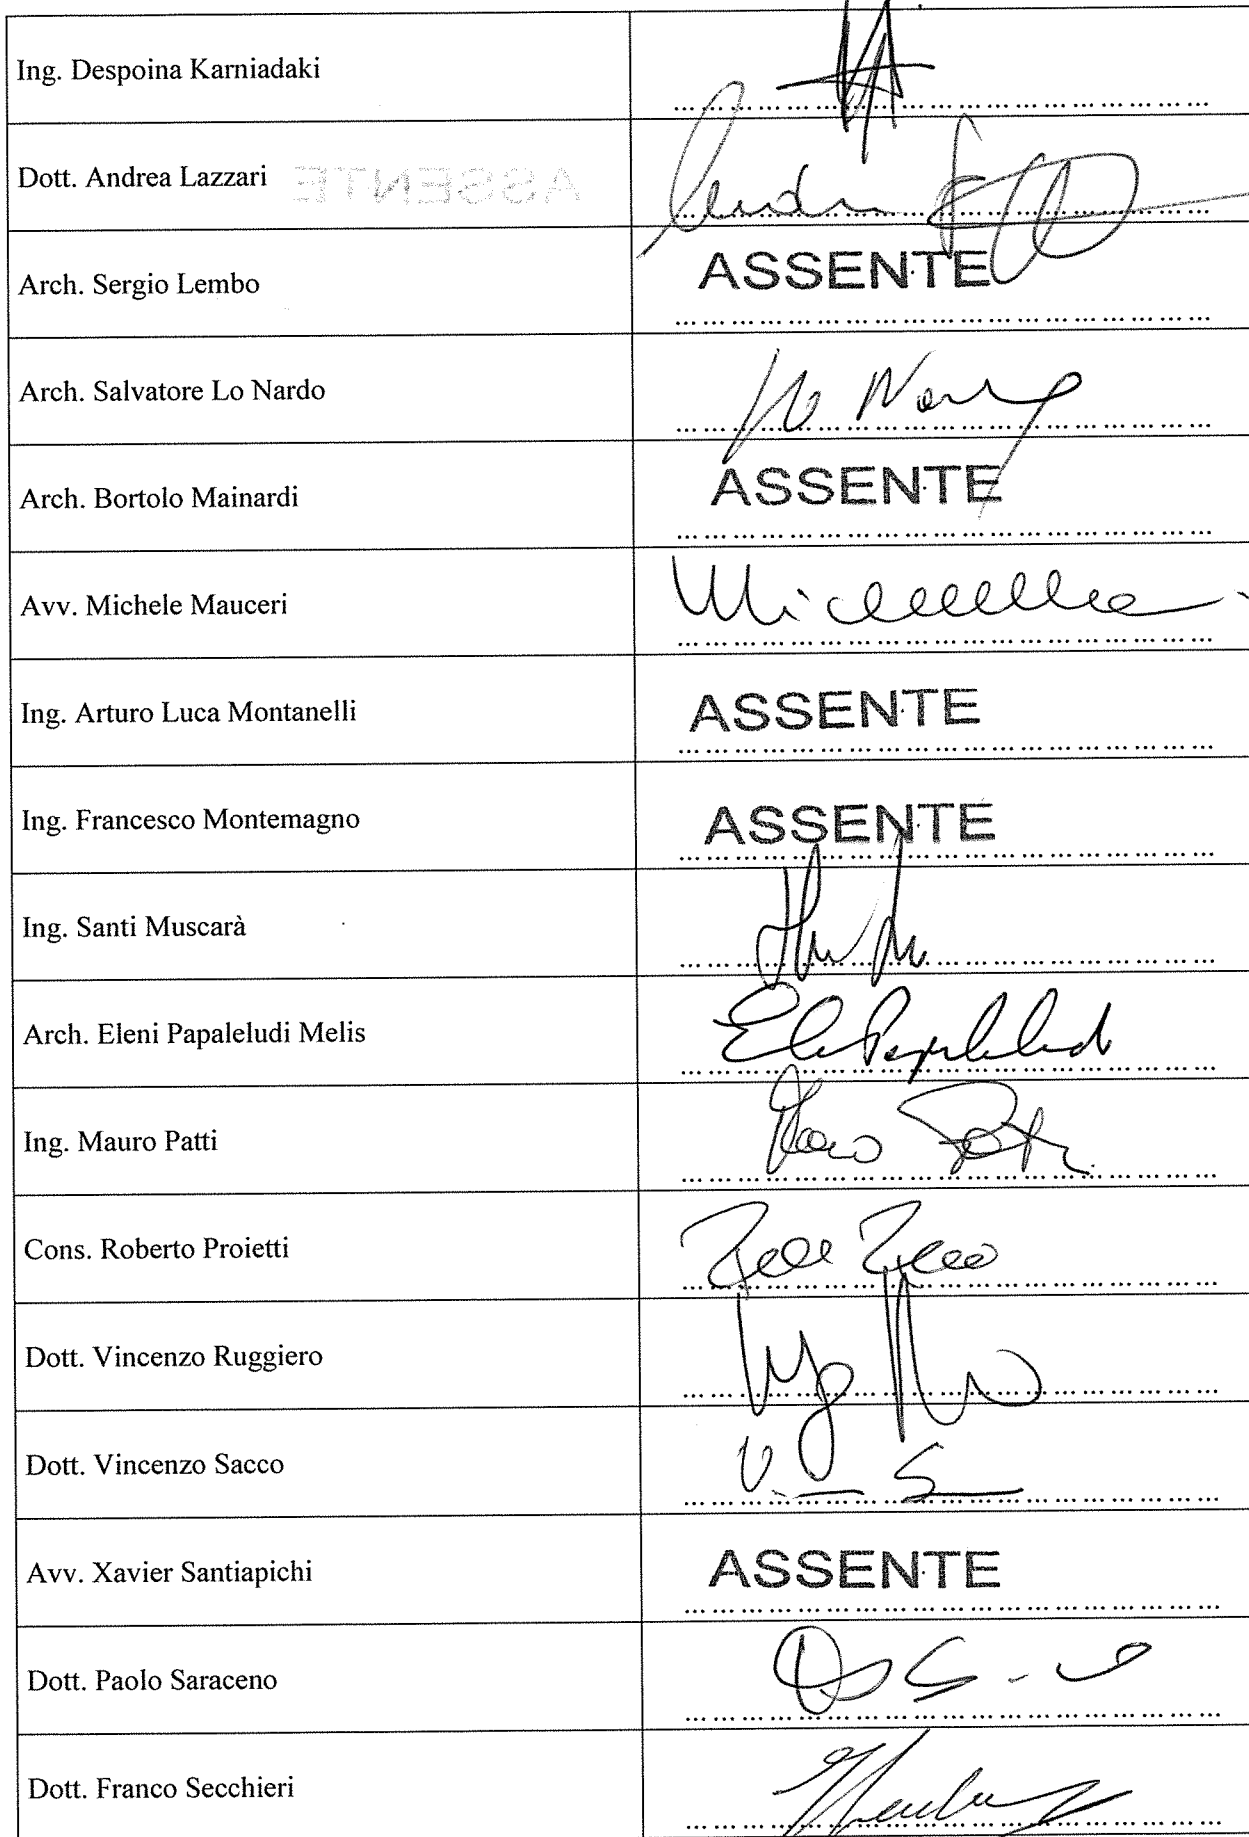 Ing. Despoina Karniadaki
Dott. Andrea Lazzari
Arch. Sergio Lembo ASSENTE
Arch. Salvatore Lo Nardo Lo Nardo
Arch. Bortolo Mainardi ASSENTE
Avv. Michele Mauceri
Ing. Arturo Luca Montanelli ASSENTE
Ing. Francesco Montemagno ASSENTE
Ing. Santi Muscarà
Arch. Eleni Papaleludi Melis
Ing. Mauro Patti
Cons. Roberto Proietti
Dott. Vincenzo Ruggiero
Dott. Vincenzo Sacco
Avv. Xavier Santiapichi ASSENTE
Dott. Paolo Saraceno
Dott. Franco Secchieri